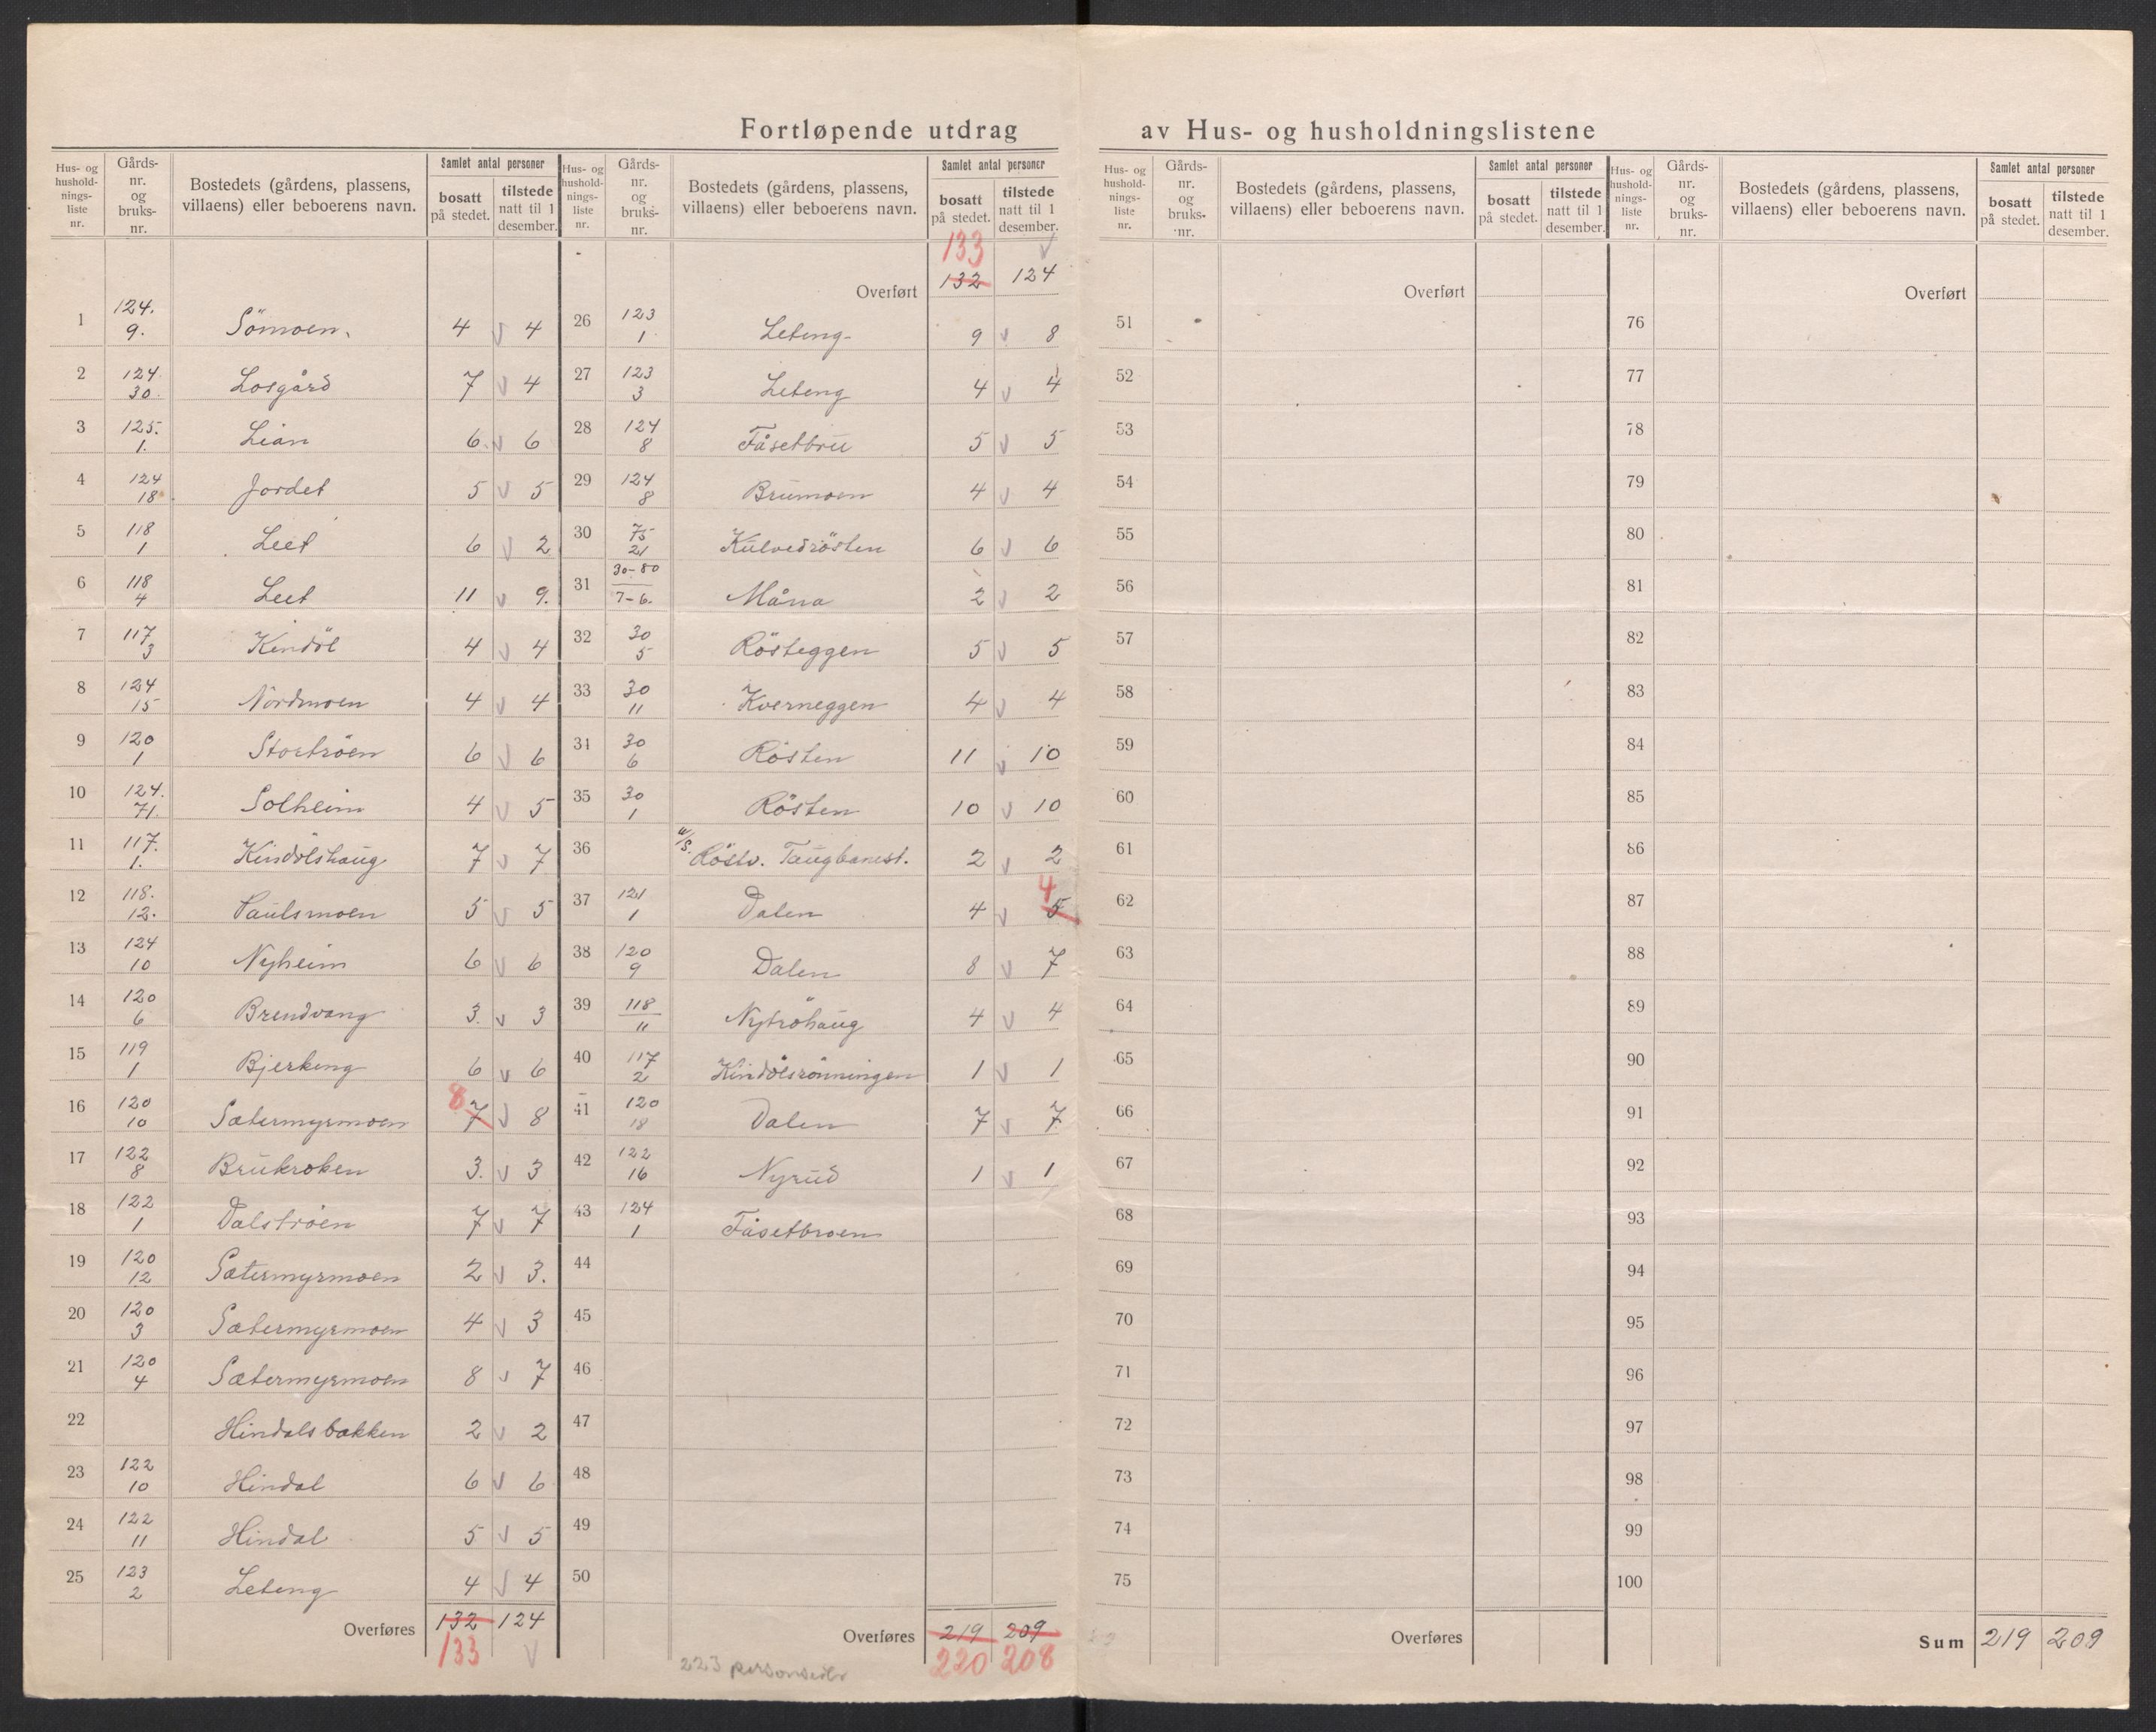 Fortløpende utdrag av Hus- og husholdningslistene
Hus- og hushold-nings-liste nr. | Gårds-nr. og bruks-nr. | Bostedets (gårdens, plassens, villaens) eller beboerens navn. | Samlet antal personer | bosatt på stedet. | tilstede natt til 1 desember.
1 | 124. 9. | Sömoen. | 4 v 4
2 | 124. 30. | Losgård | 7 v 4
3 | 125. 1. | Lian | 6. v 6
4 | 124 18 | Jordet | 5 v 5
5 | 118 1 | Leet | 6 v 2
6 | 118 4 | Leet | 11 v 9.
7 | 117 3 | Kindöl | 4 v 4
8 | 124 15 | Nordmoen | 4 v 4
9 | 120 1 | Stortröen | 6 v 6
10 | 124. 71. | Solheim | 4 v 5
11 | 117. 1. | Kindölshaug | 7 v 7
12 | 118. 12. | Paulsmoen | 5 v 5
13 | 124 10 | Nyheim | 6 v 6
14 | 120 6 | Brendvang | 3. v 3
15 | 119 1 | Bjerkeng | 6 v 6
16 | 120 10 | Sætermyrmoen | 8 7 v 8
17 | 122 8 | Brukroken | 3. v 3
18 | 122 1 | Dalströen | 7 v 7
19 | 120 12 | Sætermyrmoen | 2 v 3.
20 | 120 3 | Sætermyrmoen | 4 v 3
21 | 120 4 | Sætermyrmoen | 8 v 7
22 | Hindalsbakken | 2 v 2
23 | 122 10 | Hindal | 6 v 6
24 | 122 11 | Hindal | 5 v 5
25 | 123 2 | Leteng | 4 v 4
Overføres | 132 | 124
133 v
Hus- og hushold-nings-liste nr. | Gårds-nr. og bruks-nr. | Bostedets (gårdens, plassens, villaens) eller beboerens navn. | Samlet antal personer | bosatt på stedet. | tilstede natt til 1 desember.
133 v
Overført | 132 | 124
26 | 123 1 | Leteng | 9 v 8
27 | 123 3 | Leteng | 4 v 4
28 | 124 8 | Fåsetbru | 5 v 5
29 | 124 8 | Brumoen | 4 v 4
30 | 75 21 | Kulvedrösten | 6 v 6
31 | 30-80 7-6. | Måna | 2 v 2
32 | 30 5 | Rösteggen | 5 v 5
33 | 30 11 | Kverneggen | 4 v 4
34 | 30 6 | Rösten | 11 v 10
35 | 30 1 | Rösten | 10 v 10
36 | Röstv. Taugbanest. | 2 v 2
37 | 121 1 | Dalen | 4 v 5 4
38 | 120 9 | Dalen | 8 v 7
39 | 118 11 | Nytröhaug | 4 v 4
40 | 117 2 | Kindölsrönningen | 1 v 1
41 | 120 18 | Dalen | 7 v 7
42 | 122 16 | Nyrud | 1 v 1
43 | 124 1 | Fåsetbroen
44
45
46
47
48
49
50
Overføres | 219 | 209
220 208
223 personsedlr
Hus- og hushold-nings-liste nr. | Gårds-nr. og bruks-nr. | Bostedets (gårdens, plassens, villaens) eller beboerens navn. | Samlet antal personer | bosatt på stedet. | tilstede natt til 1 desember.
Overført
51
52
53
54
55
56
57
58
59
60
61
62
63
64
65
66
67
68
69
70
71
72
73
74
75
Overføres
Hus- og hushold-nings-liste nr. | Gårds-nr. og bruks-nr. | Bostedets (gårdens, plassens, villaens) eller beboerens navn. | Samlet antal personer | bosatt på stedet. | tilstede natt til 1 desember.
Overført
76
77
78
79
80
81
82
83
84
85
86
87
88
89
90
91
92
93
94
95
96
97
98
99
100
Sum | 219 | 209